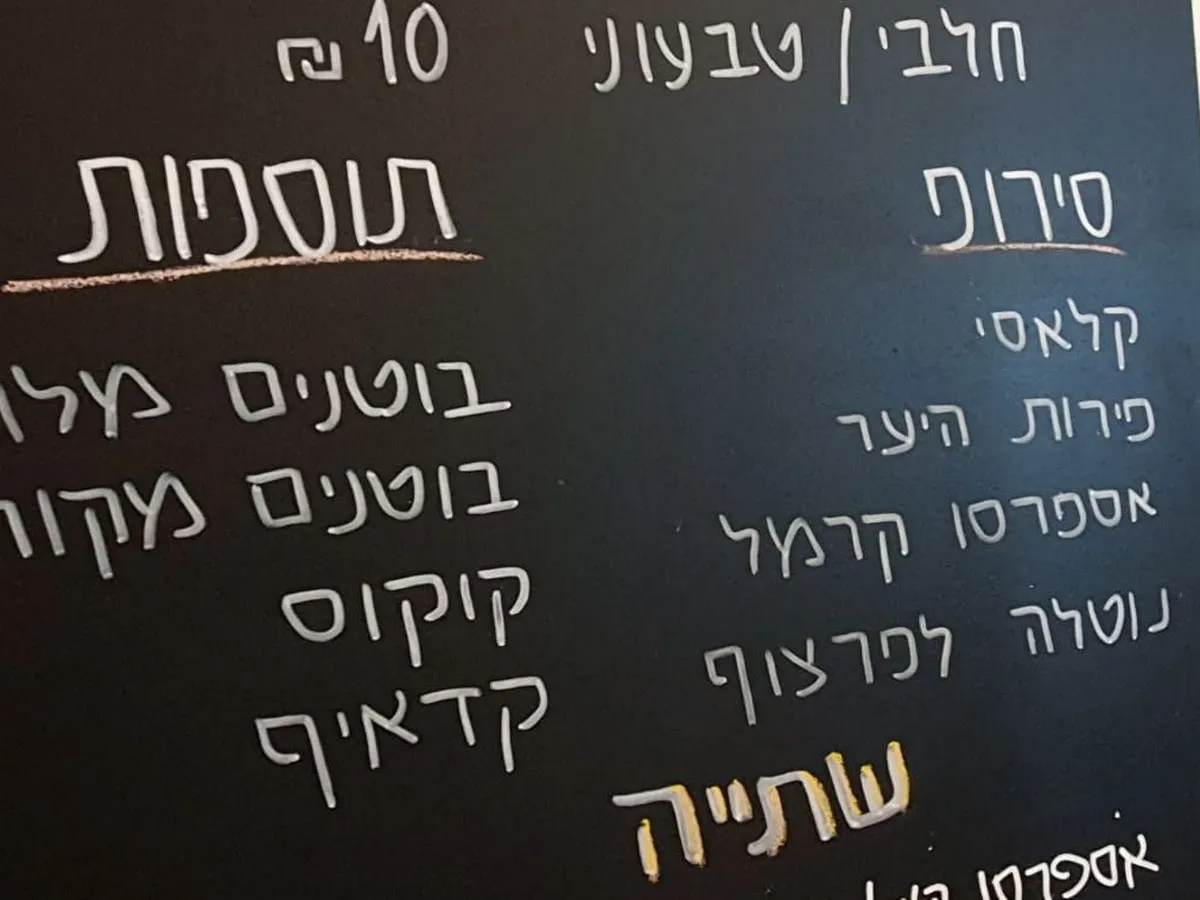 חלבי / טבעוני 10 ₪
סירופ
קלאסי
פירות היער
אספרסו קרמל
נוטלה לפרצוף
תוספות
בוטנים
בוטנים
קוקוס
קדאיף
שתייה
אספרסו